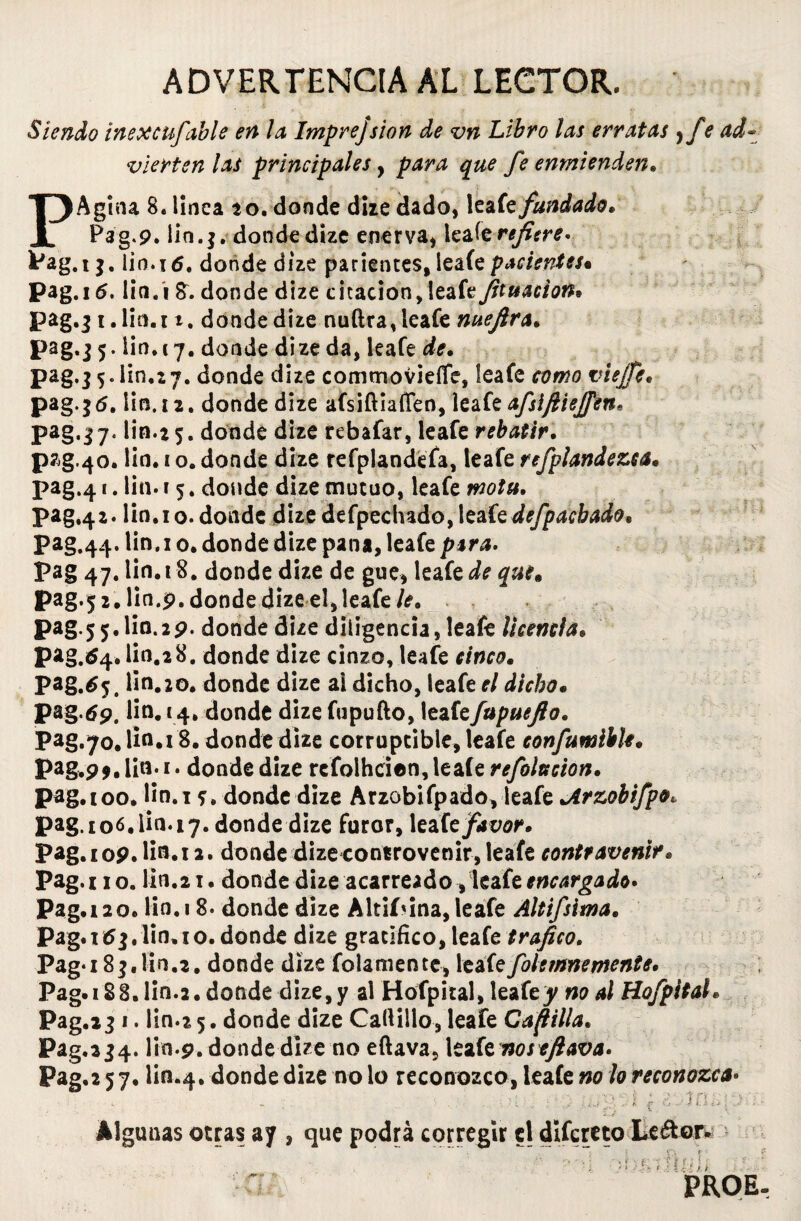 ADVERTENCIA AL LECTOR.
Siendo inexcuſable en la Impreſsion de vn Libro las erratas, ſe ad-
vierten las principales, para que ſe enmienden.
PAgina 8. linea 20. donde dize dado, leaſe fundado.
Pag.9. lin.3. donde dize enerva, leaſe refiere.
Pag.13. lin.16. donde dize parientes, leaſe pacientes.
pag.16. lin.18. donde dize citacion, leaſe ſituacion.
pag.31. lin.11. donde dize nuſtra, leaſe nueſtra.
pag.35. lin.17. donde dize da, leaſe de.
pag.35. lin.27. donde dize commovieſſe, leaſe como vieſſe.
pag.36. lin.12. donde dize aſsiſtiaſſen, leaſe aſsiſtieſſen.
pag.37. lin.25. donde dize rebaſar, leaſe rebatir.
pag.40. lin.10. donde dize reſplandeſa, leaſe reſplandezca.
pag.41. lin.15. donde dize mutuo, leaſe motu.
pag.42. lin.10. donde dize deſpechado, leaſe deſpachado.
pag.44. lin.10. donde dize pana, leaſe para.
pag 47. lin.18. donde dize de gue, leaſe de que.
pag.52. lin.9. donde dize el, leaſe le.
pag.55. lin.29. donde dize diligencia, leaſe licencia.
pag.64. lin.28. donde dize cinzo, leaſe cinco.
pag.65. lin.20. donde dize al dicho, leaſe el dicho.
pag.69. lin.14. donde dize ſupuſto, leaſe ſupueſto.
pag.70. lin.18. donde dize corruptible, leaſe conſumible.
pag.99. lin.1. donde dize reſolhcion, leaſe reſolucion.
pag.100. lin.15. donde dize Arzobiſpado, leaſe Arzobiſpo.
pag.106. lin.17. donde dize furor, leaſe favor.
pag.109. lin.12. donde dize controvenir, leaſe contravenir.
Pag.110. lin.21. donde dize acarreado, leaſe encargado.
Pag.120. lin.18. donde dize Altiſsina, leaſe Altiſsima.
Pag.163. lin.10. donde dize gratifico, leaſe trafico.
Pag.183. lin.2. donde dize ſolamente, leaſe ſolemnemente.
Pag.188. lin.2. donde dize, y al Hoſpital, leaſe y no al Hoſpital.
Pag.231. lin.25. donde dize Caſtillo, leaſe Caſtilla.
Pag.234. lin.9. donde dize no eſtava, leaſe nos eſtava.
Pag.257. lin.4. donde dize no lo reconozco, leaſe no lo reconozca.
Algunas otras ay, que podrà corregir el diſcreto Lector.
PROE-